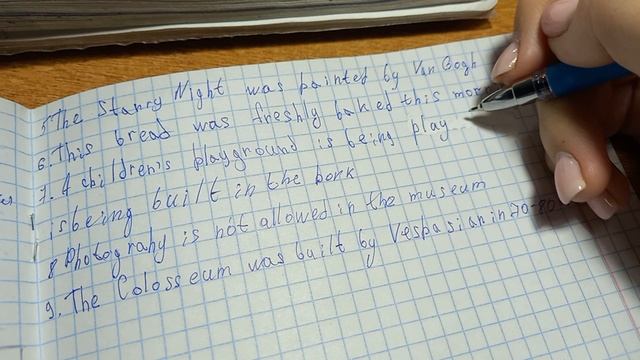 5. The Starry Night was painted by Van Gogh
6. This bread was freshly baked this mor
7. A children's playground is being play
is being built in the bork
8 Photograhy is not allowed in the museum
9. The Colosseum was built by Vespasian in 70-80